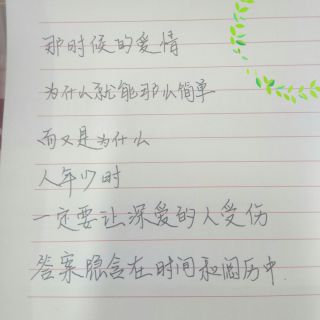 那时候的爱情
为什么就能那么简单
而又是为什么
人年少时
一定要让深爱的人受伤
答案隐含在时间和阅历中.